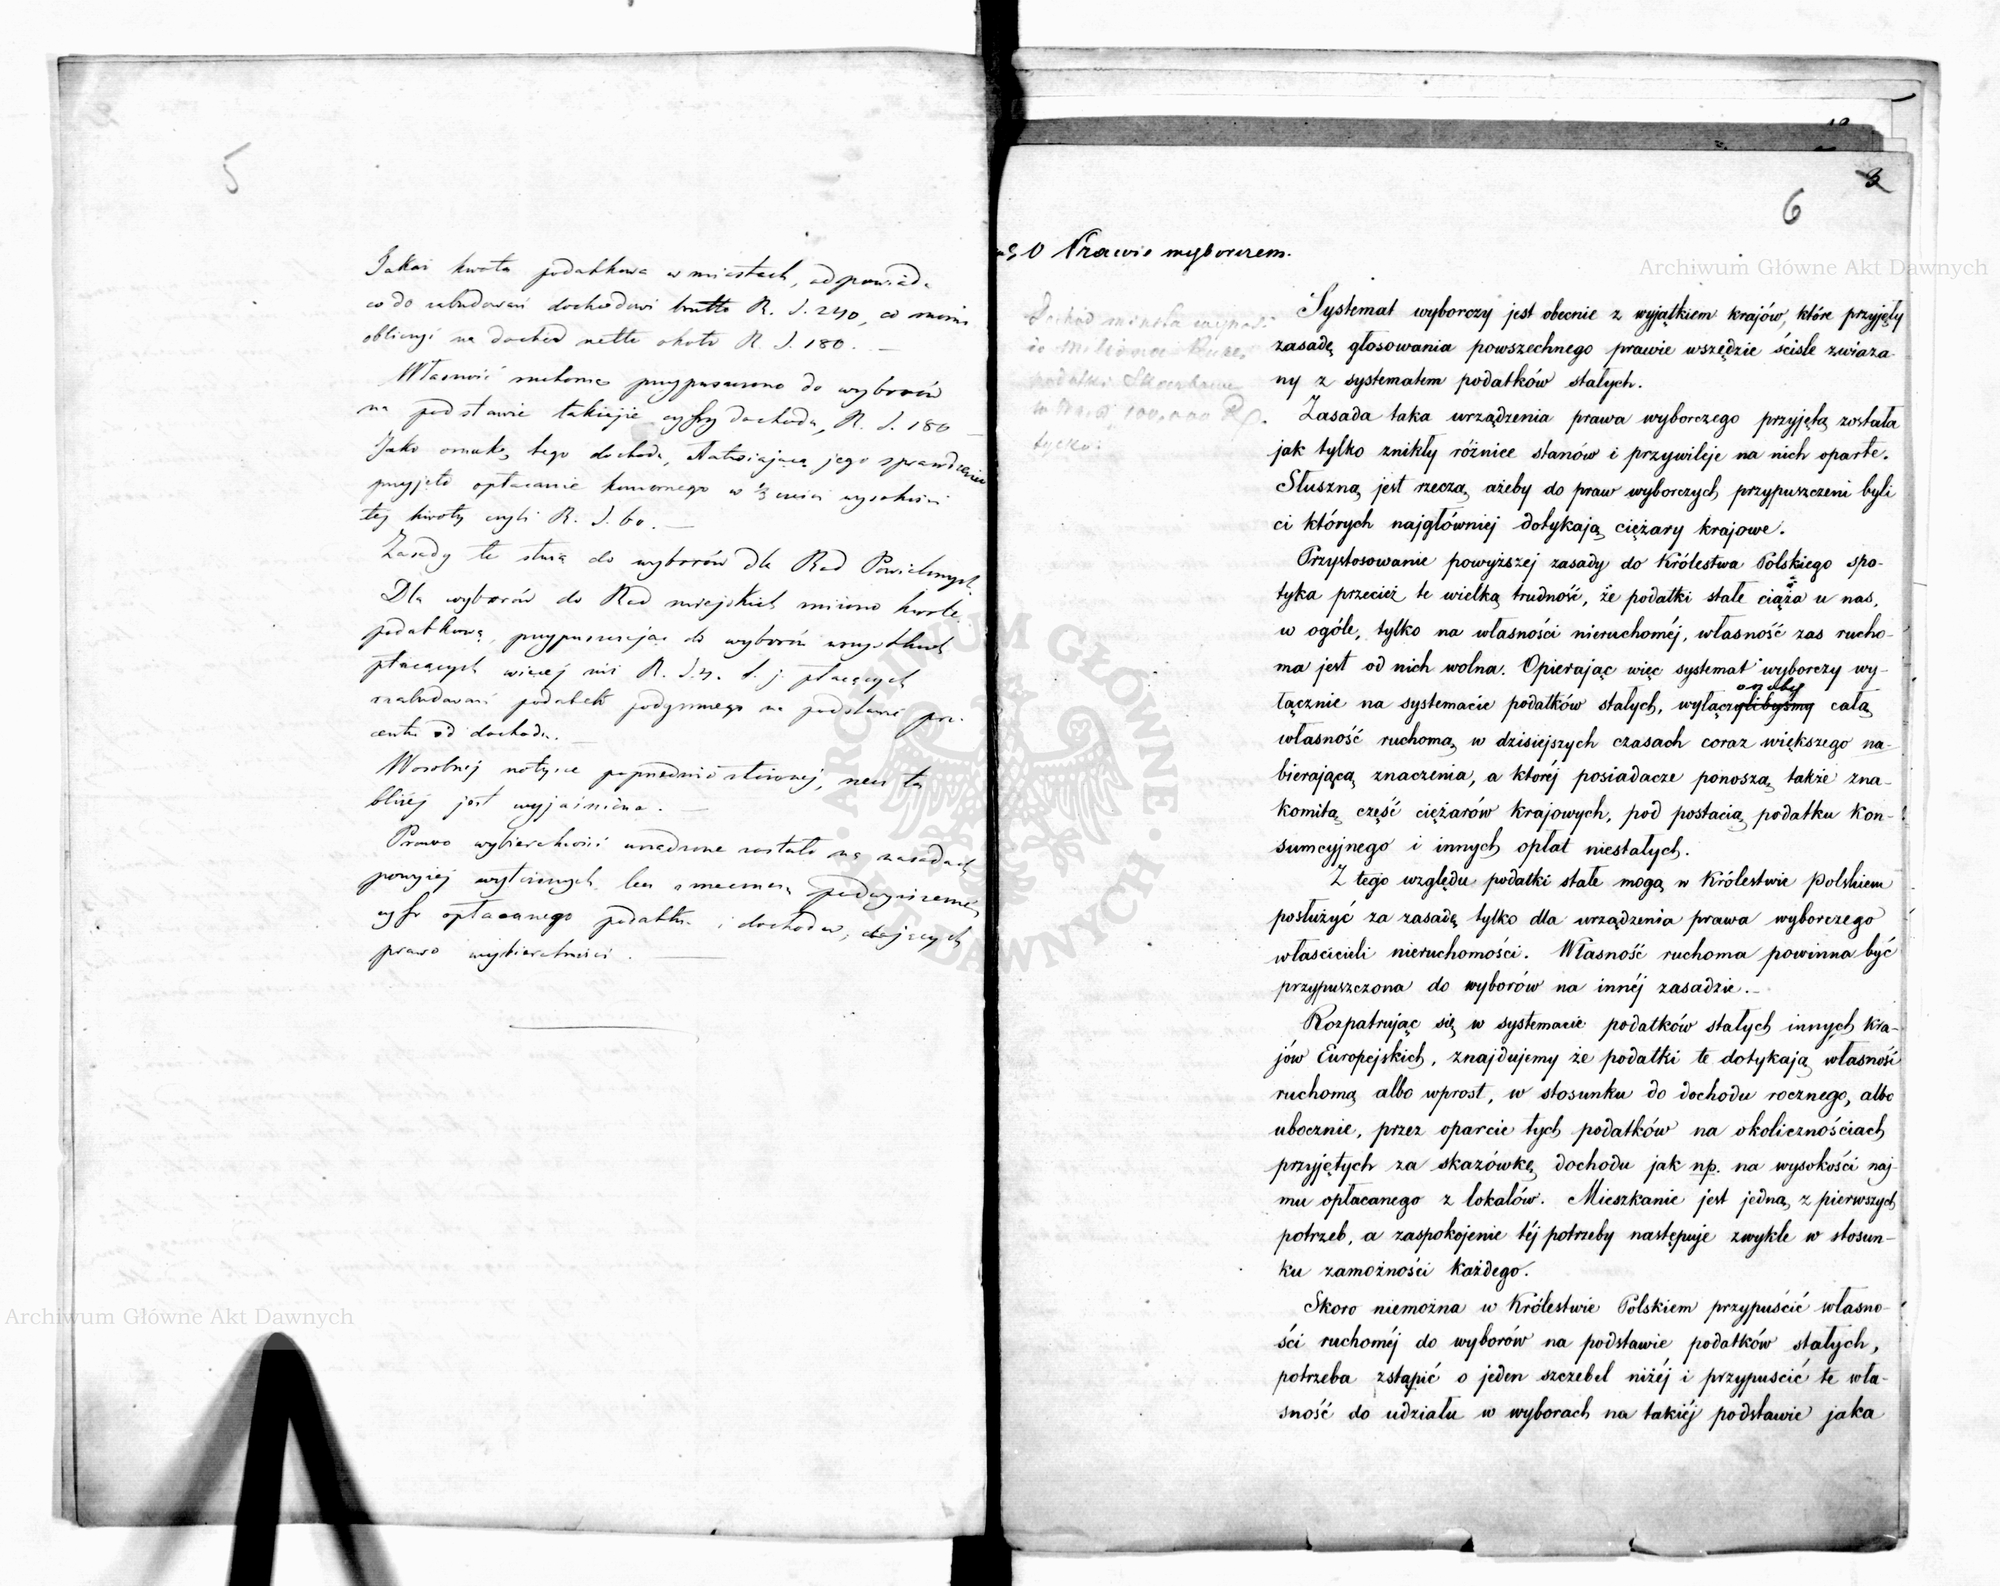 5
Jakaś kwota podatkowa w miastach, odpowiada
co do zabudowań dochodowi brutto R. S. 240, co
obliczyć na dochód netto około R. S. 180. —
Własność ruchomą przypuszczono do wyborów
na podstawie takiejże cyfry dochodu, R. S. 180
Jako oznakę tego dochodu, ułatwiającą jego sprawdzenie
przyjęto opłacanie komornego w ⅓ części wysokości
tej kwoty czyli R. S. 60. —
Zasady te służą do wyborów dla Rad Powiatowych
Dla wyborów do Rad miejskich
podatkową, przypuszczając do wyborów wszystkich
płacących więcej niż R. S. 4. t. j. płacących
podatek podymnego na podstawie pro-
centu od dochodu. —
W osobnej notycie poprzednio złożonej, rzecz ta
bliżej jest wyjaśniona. —
Prawo wybieralności urządzone zostało na zasadach
powyżej wyłożonych lecz
cyfr opłacanego podatku i dochodu, dających
prawo wybieralności. —
3
6
O Prawie wyborczem.
Dochód miasta
podatki
tylko.
Systemat wyborczy jest obecnie z wyjątkiem krajów, które przyjęły
zasadę głosowania powszechnego prawie wszędzie ściśle związa-
ny z systematem podatków stałych.
Zasada taka urządzenia prawa wyborczego przyjętą została
jak tylko znikły różnice stanów i przywileje na nich oparte.
Słuszną jest rzeczą, ażeby do praw wyborczych przypuszczeni byli
ci których najgłówniej dotykają ciężary krajowe.
Przystosowanie powyższej zasady do Królestwa Polskiego spo-
tyka przecież tę wielką trudność, że podatki stałe ciążą u nas,
w ogóle, tylko na własności nieruchoméj, własność zaś rucho-
ma jest od nich wolna. Opierając więc systemat wyborczy wy-
łącznie na systemacie podatków stałych, wyłączylibyśmy całą
własność ruchomą, w dzisiejszych czasach coraz większego na-
bierającą znaczenia, a któréj posiadacze ponoszą także zna-
komitą część ciężarów krajowych, pod postacią podatku kon-
sumcyjnego i innych opłat niestałych.
Z tego względu podatki stałe mogą w Królestwie Polskiem
posłużyć za zasadę tylko dla urządzenia prawa wyborczego
właścicieli nieruchomości. Własność ruchoma powinna być
przypuszczona do wyborów na innéj zasadzie. —
Rozpatrując się w systemacie podatków stałych innych kra-
jów Europejskich, znajdujemy że podatki te dotykają własności
ruchomą albo wprost, w stosunku do dochodu rocznego, albo
ubocznie, przez oparcie tych podatków na okolicznościach
przyjętych za skazówkę dochodu jak np. na wysokości naj-
mu opłacanego z lokalów. Mieszkanie jest jedną z pierwszych
potrzeb, a zaspokojenie téj potrzeby następuje zwykle w stosun-
ku zamożności każdego.
Skoro niemożna w Królestwie Polskiem przypuścić własno-
ści ruchoméj do wyborów na podstawie podatków stałych,
potrzeba zstąpić o jeden szczebel niżéj i przypuścić tę wła-
sność do udziału w wyborach na takiéj podstawie jaka
Archiwum Główne Akt Dawnych
Archiwum Główne Akt Dawnych
ARCHIWUM GŁÓWNE AKT DAWNYCH